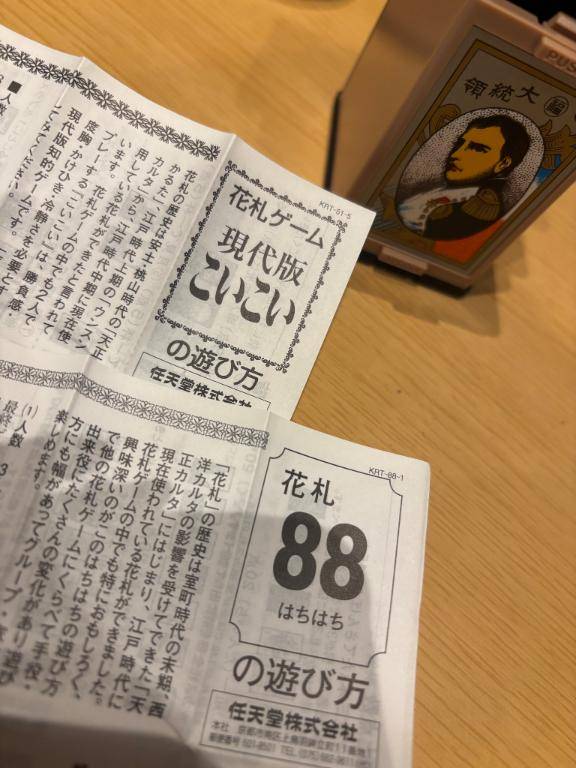 領統大 福
PUS
KRT-51-5
花札ゲーム
現代版
こいこい
の遊び方
任天堂株式会
花札の歴史は安土・桃山時代の「天正
かるた」、江戸時代上期の「ウンスン
カルタ」から、江戸時代中期に現在使
用している花札ができたと言われて
います。花札ゲームの中でも2人で
プレーする「こいこい」は、勝負感・
度胸・かけひき・冷静さを必要と
現代版知的ゲームです。
てみてください。
■人数
KRT-88-1
花札
88
はちはち
の遊び方
任天堂株式会社
本社 京都市南区上鳥羽鉾立町11番地1
郵便番号 601-8501 TEL (075)
「花札」の歴史は室町時代の末期、西
洋カルタの影響を受けてできた「天
正カルタ」にはじまり、江戸時代に
現在使われている花札ができました。
花札ゲームの中でも特におもしろく、
興味深いのがこのはちはちの遊び方
で他の花札ゲームにくらべて手役・
出来役にたくさんの変化があり遊び
方にも幅があってグループ・
楽しめます。
(1) 人数